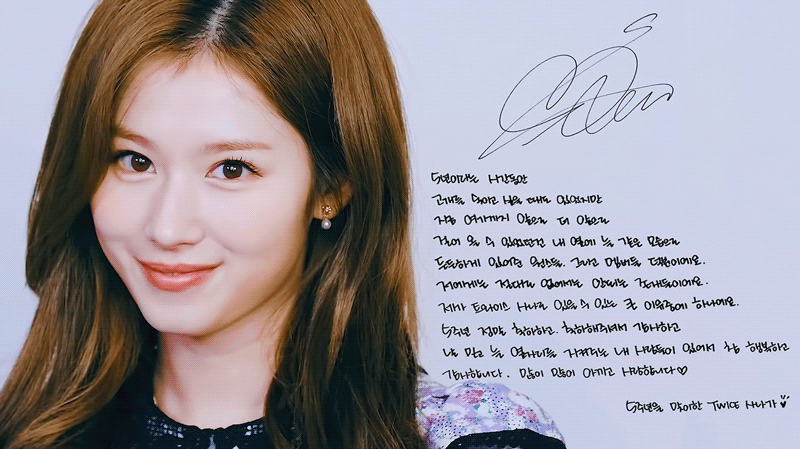 5년이라는 시간동안
고개를 숙이고 싶을 때도 있었지만
지금 여기까지 앞으로 더 앞으로
걸어 올 수 있었던건 내 옆에 늘 같은 마음으로
든든하게 있어준 원스들. 그리고 멤버들 덕분이에요.
저에게는 절대로 없어서는 안되는 존재들이에요.
제가 트와이스 사나로 있을 수 있는 큰 이유중에 하나에요.
5주년 정말 축하하고. 축하해줘서 감사하고
나를 믿고 늘 옆자리를 지켜주는 내 사람들이 있어서 참 행복하고
감사합니다. 많이 많이 아끼고 사랑합니다♡
5주년을 맞이한 TWICE 사나가♥